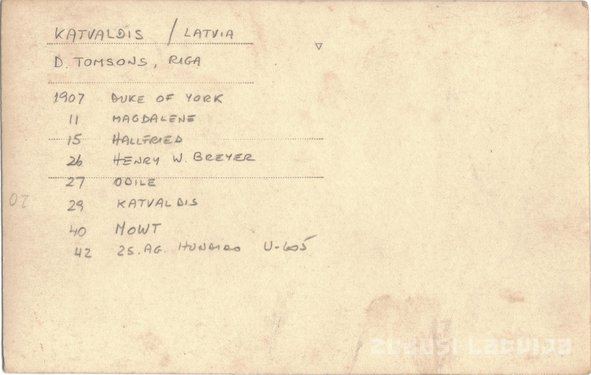 KATVALDIS / LATVIA
D. TOMSONS, RIGA
1907 DUKE OF YORK
11 MAGDALENE
15 HALLFRIED
26 HENRY W. BREYER
27 ODILE
29 KATVALDIS
40 MOWT
42 25. AG. U-605
20
zudusi Latvija